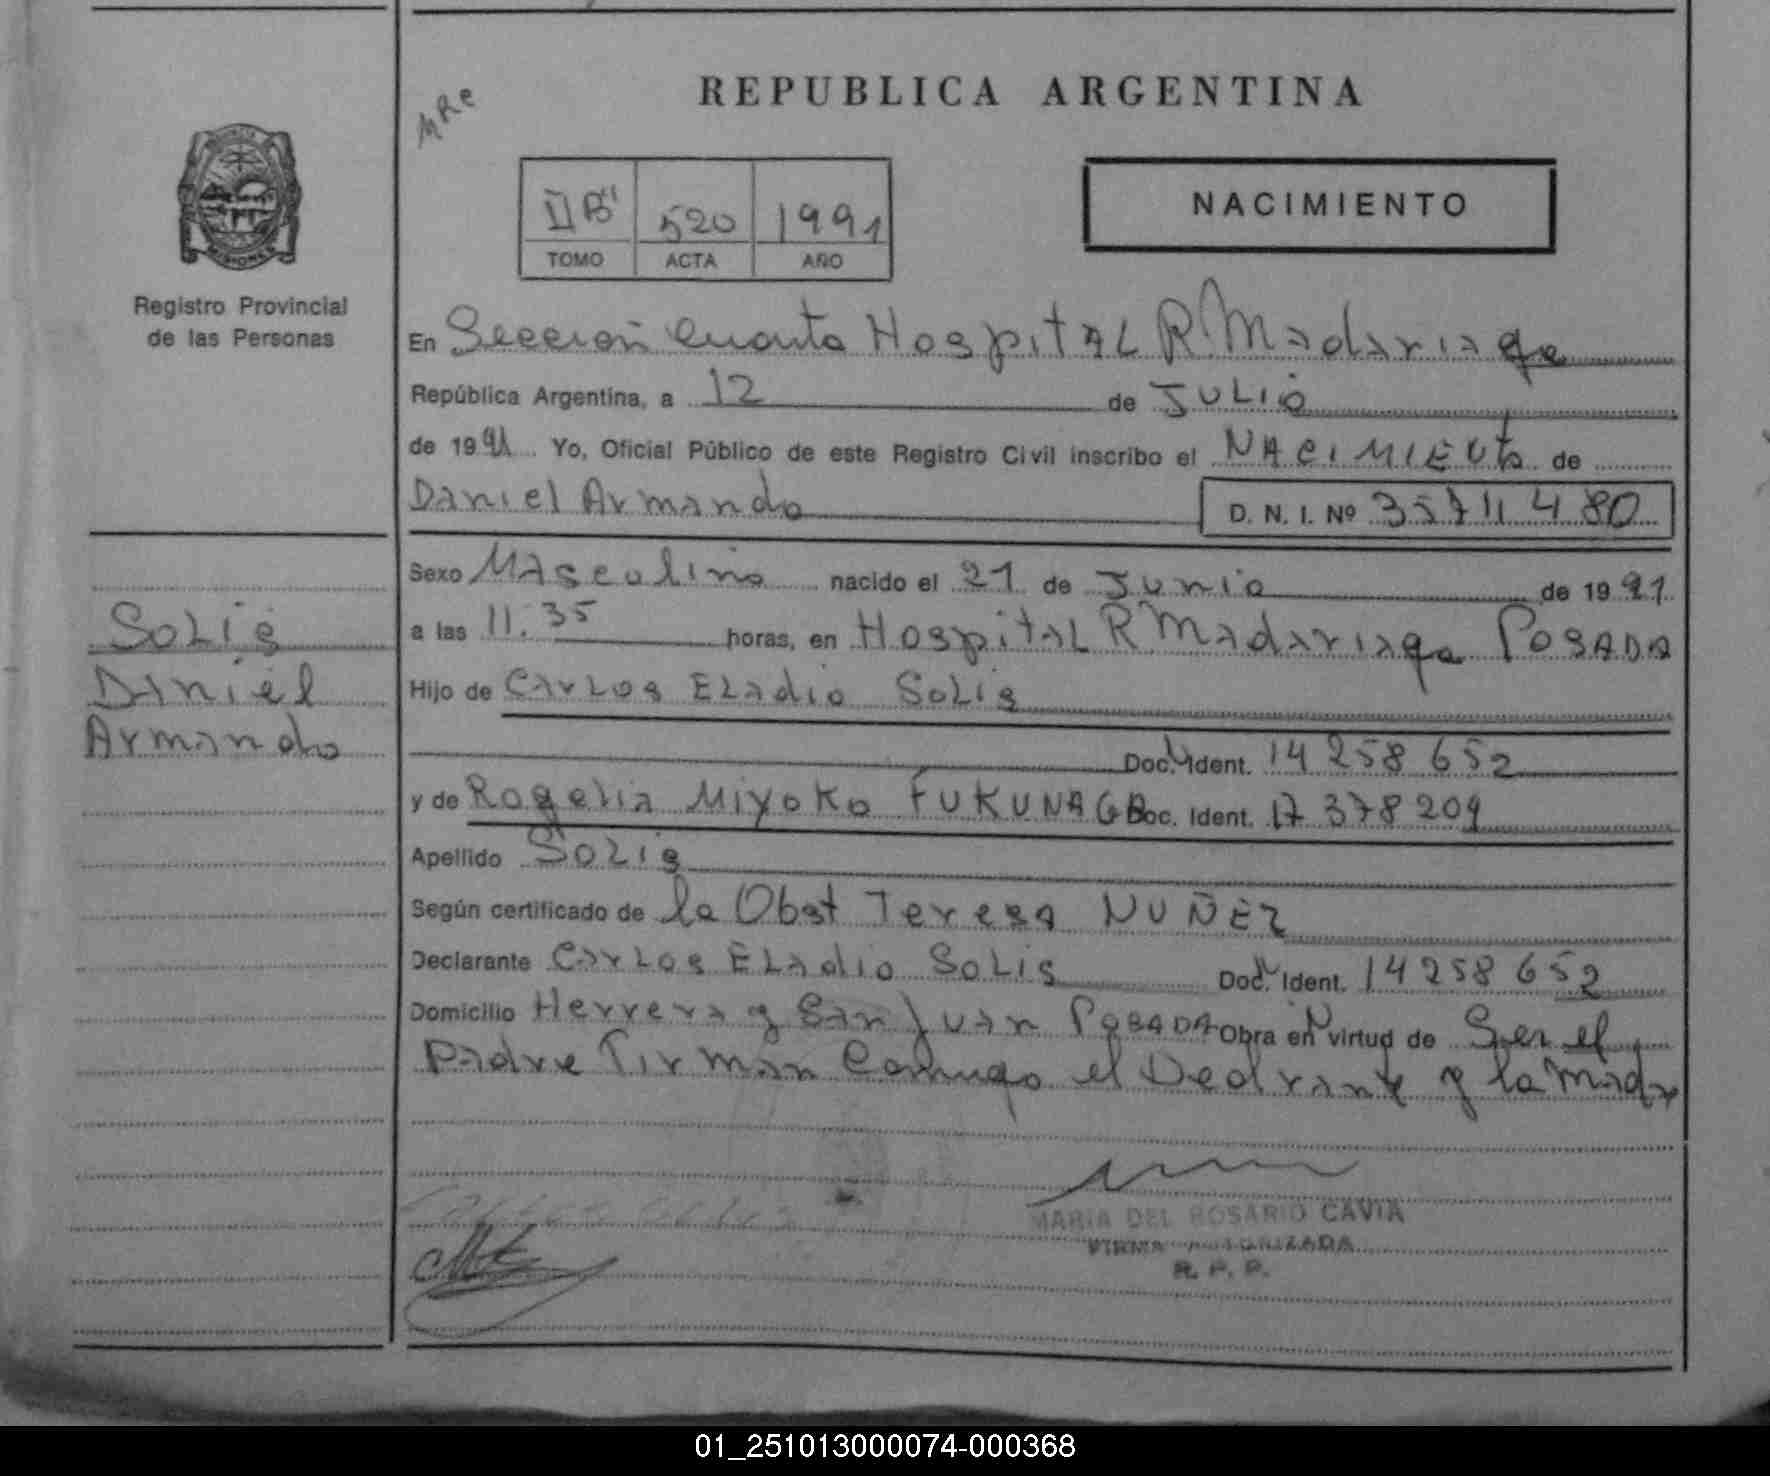 REPUBLICA ARGENTINA
MRe
II B" 520 1991
TOMO ACTA AÑO
NACIMIENTO
Registro Provincial
de las Personas
En Sección Cuarta Hospital R. Madariaga
República Argentina, a 12 de Julio
de 1991 Yo, Oficial Público de este Registro Civil inscribo el NACIMIENto de
Daniel Armando D. N. I. Nº 35711480
Sexo Masculino nacido el 21 de Junio de 1991
a las 11.35 horas, en Hospital R Madariaga POSADA
Hijo de Carlos Eladio Solis
Doc. Ident. 14 258 652
y de Rogelia Miyoko FUKUNAGA Doc. Ident. 17 378 209
Apellido Solis
Según certificado de la Obst Teresa NUÑEZ
Declarante Carlos Eladio Solis Doc. Ident. 14 258 652
Domicilio Herrera y San Juan POSADA Obra en virtud de Ser el
Padre Firman Conmigo el y la Madre
Solis
Daniel
Armando
MARIA DEL ROSARIO CAVIA
FIRMA AUTORIZADA
R. P. P.
01_251013000074-000368